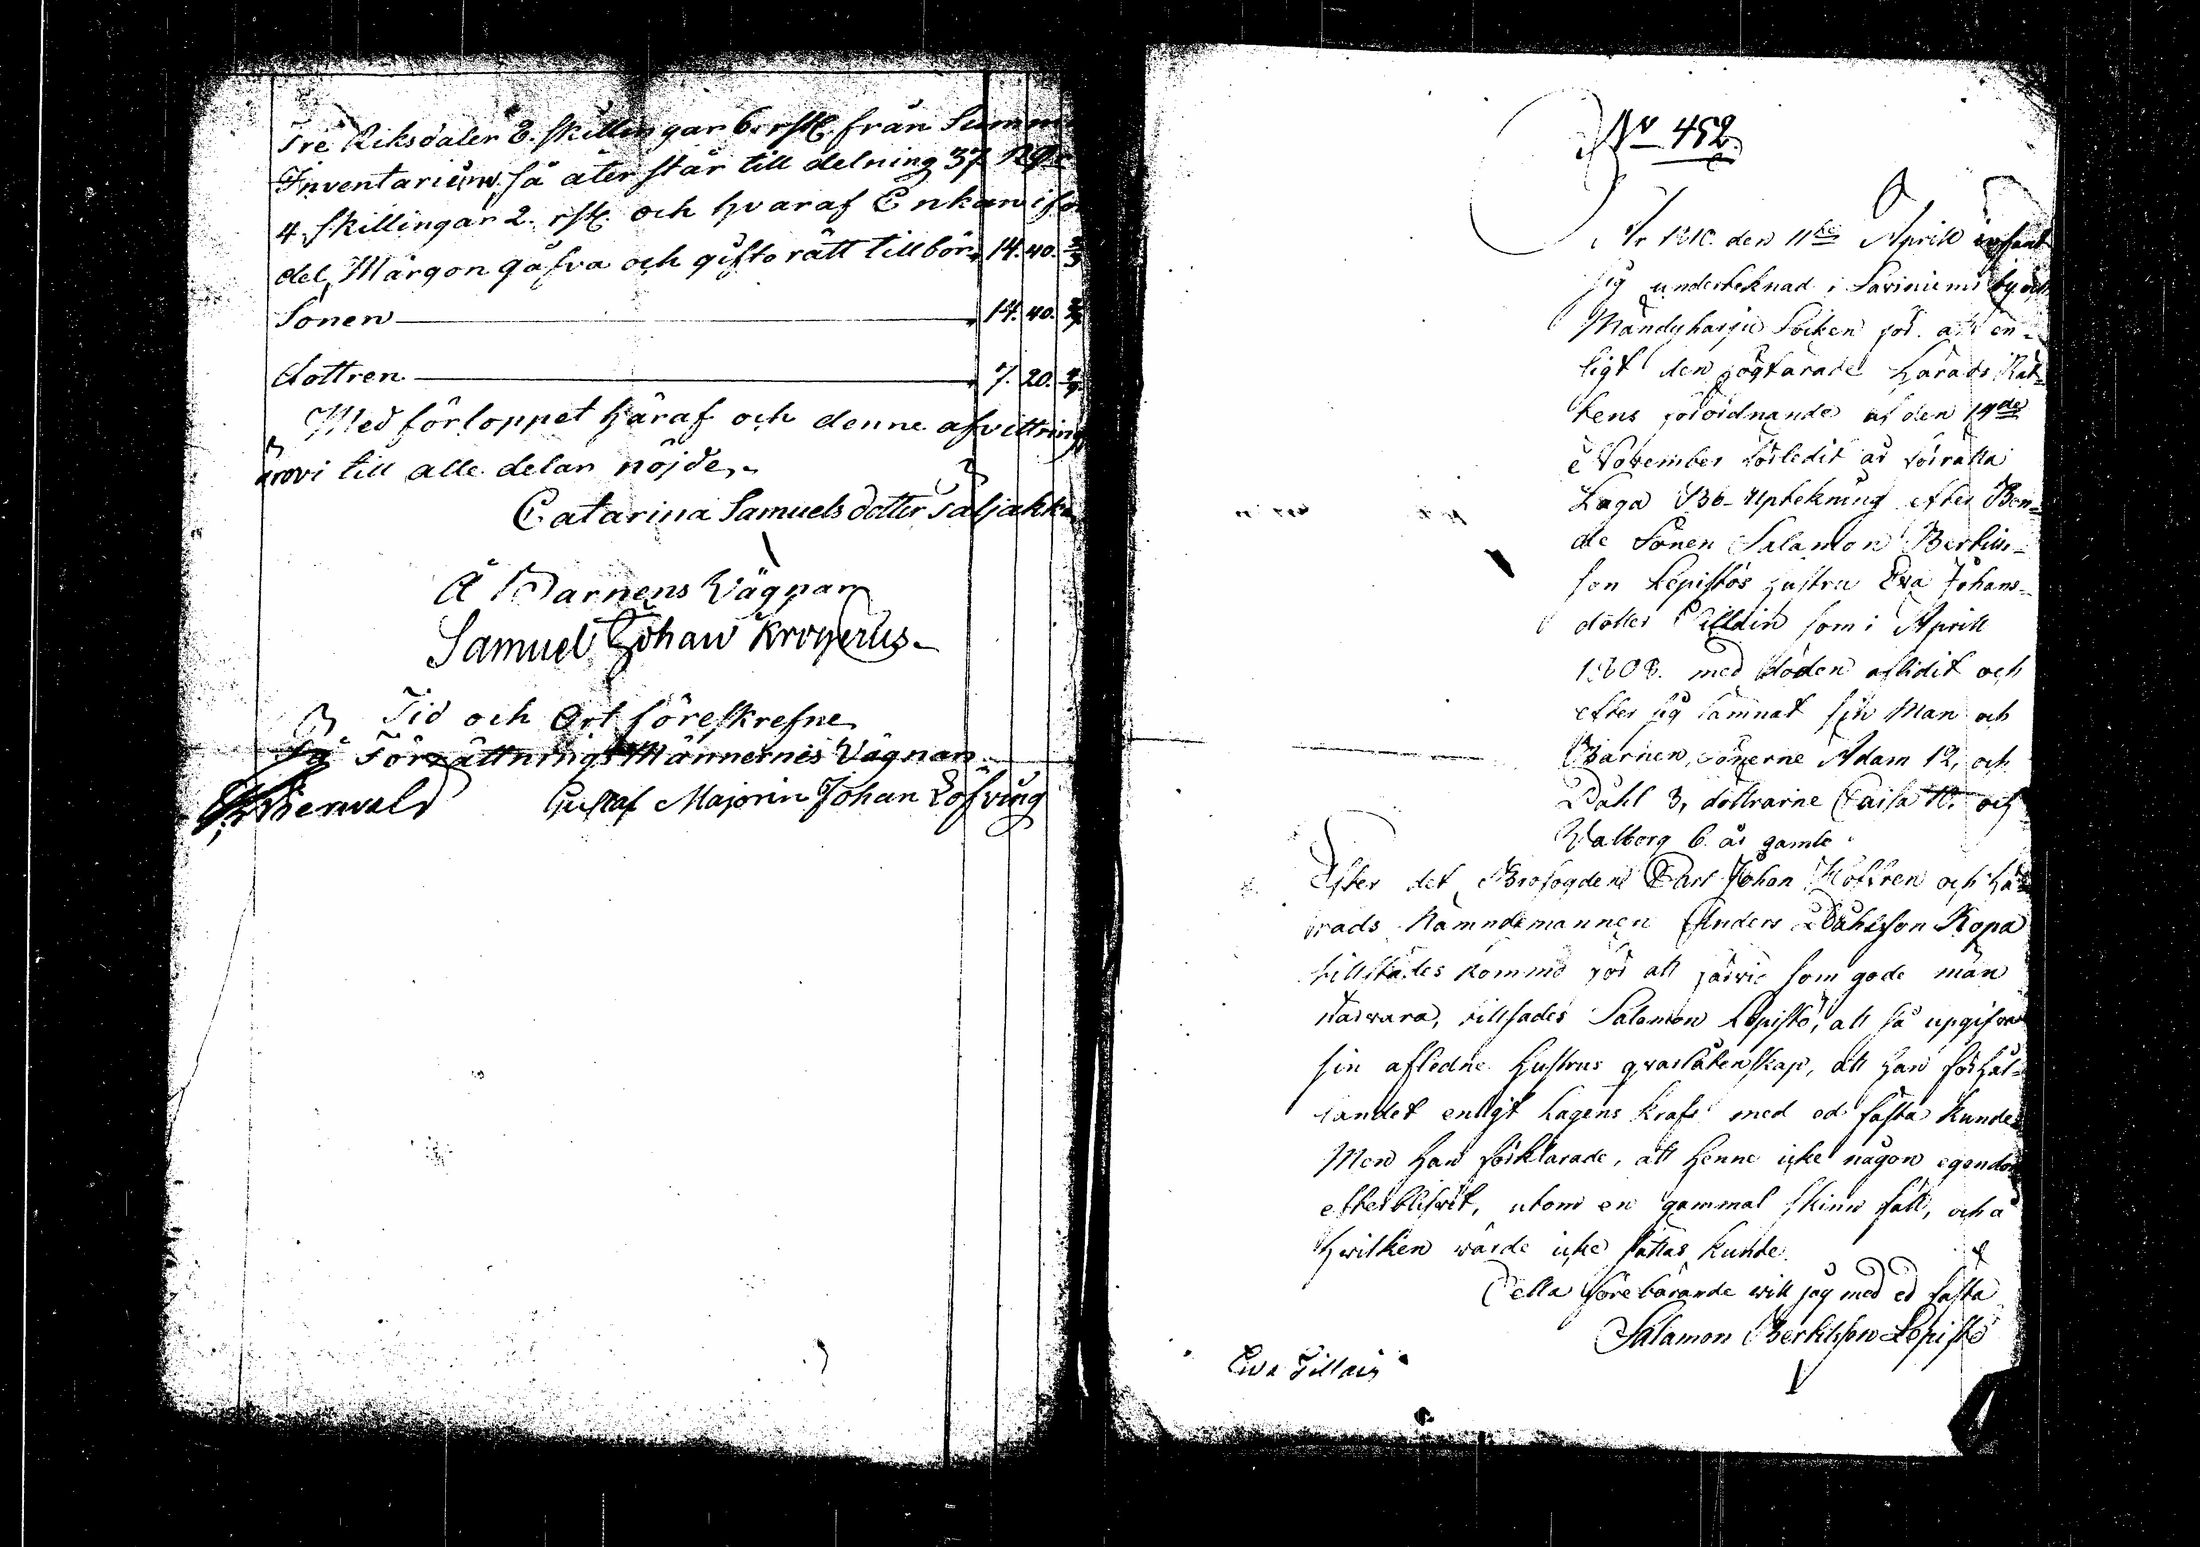 Tre Riksdaler 8. skillingar 6. rst. från Summ
Inventarium så åter står till delning 37 Rd.
4. skillingar 2. rst. och hvaraf Enkan i
del, Morgongåfva och giftorätt tillbör 14. 40.
Sonen 14. 40.
dottren 7. 20.
Med förloppet häraf och denne afvittring
äro vi till alle delar nöjde.
Catarina Samuels dotter
Å Barnens Vägnar
Samuel Johan Krogerus
Tid och Ort föreskrefne
På Förrättnings Männernes Vägnar
Gustaf Johan Löfving
No 452.
År 1810. den 11te Aprill infant
sig undertecknad i by och
Mändyharju Socken för att en-
ligt den Härads Rät-
tens förordnande af den 14de
November förledit år förrätta
Laga Bo-Uptekning efter Bon-
de Sonen Salamon Bertils-
son Lepistös hustru Eva Johans-
dotter som i Aprill
1808. med döden aflidit och
efter sig lämnat sin Man och
Barnen, Sönerne Adam 12, och
Påhl 3, döttrarne Caisa 10. och
Walborg 6. år gamle.
Efter det Brofogden Carl Johan och Hä-
rads Nämndemannen Anders Påhlsson Kopa
tillstädes kommo för att såsom gode män
närvara, tillsades Salomon Lepistö, att så upgifva
sin afledne hustrus qvarlåtenskap, att han förhål-
landet enligt Lagens kraf med ed fästa kunde.
Men han förklarade, att henne icke någon egendom
efterblifvit, utom en gammal skinn fäll, och å
hvilken värde icke sättas kunde.
Detta förebärande vill jag med ed fästa
Salamon Bertilsson Lepistö
Eva Tillain